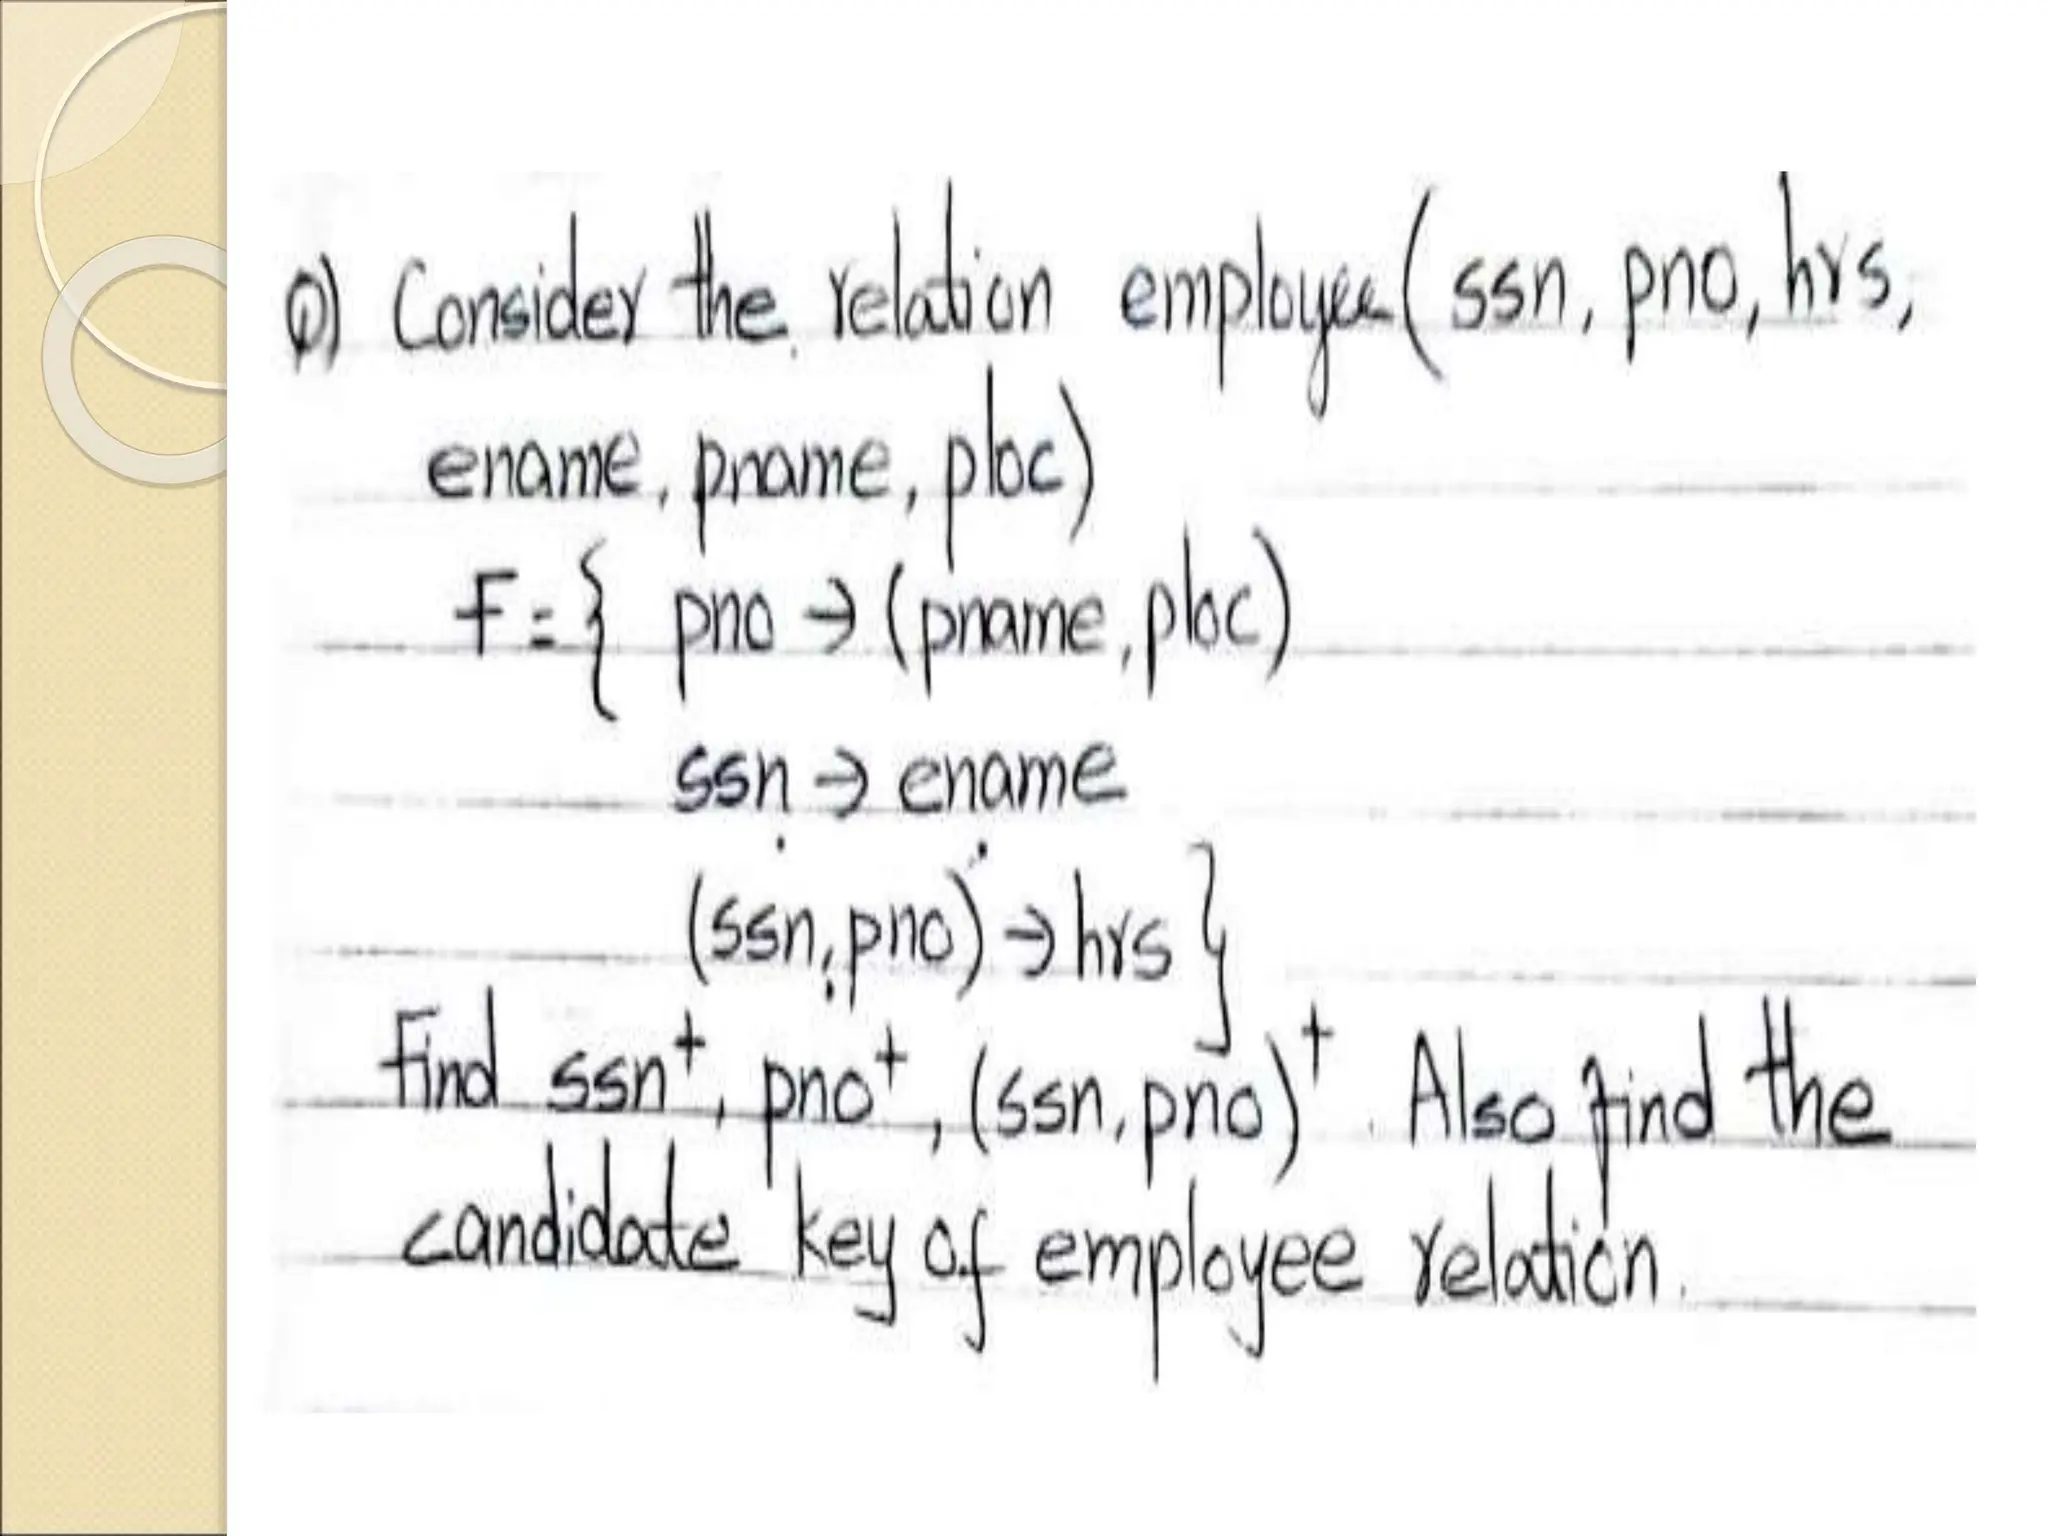 Q) Consider the relation employee(ssn, pno, hrs,
ename, pname, ploc)
F = { pno → (pname, ploc)
ssn → ename
(ssn, pno) → hrs }
Find ssn⁺, pno⁺, (ssn, pno)⁺. Also find the
candidate key of employee relation.